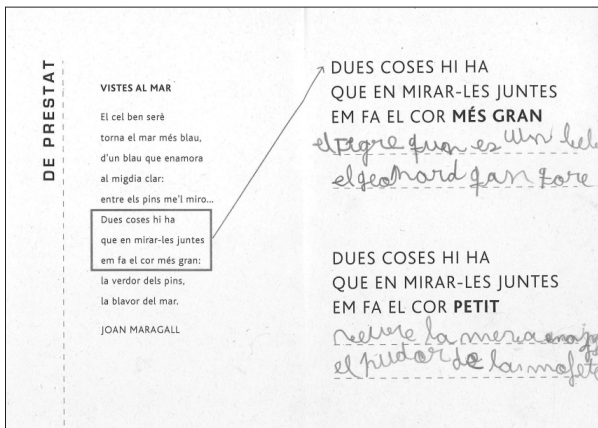 DE PRESTAT
VISTES AL MAR
El cel ben serè
torna el mar més blau,
d'un blau que enamora
al migdia clar:
entre els pins me'l miro...
Dues coses hi ha
que en mirar-les juntes
em fa el cor més gran:
la verdor dels pins,
la blavor del mar.
JOAN MARAGALL
DUES COSES HI HA
QUE EN MIRAR-LES JUNTES
EM FA EL COR MÉS GRAN
el tigre quan es un
el
DUES COSES HI HA
QUE EN MIRAR-LES JUNTES
EM FA EL COR PETIT
veure la meva
el pudor de las